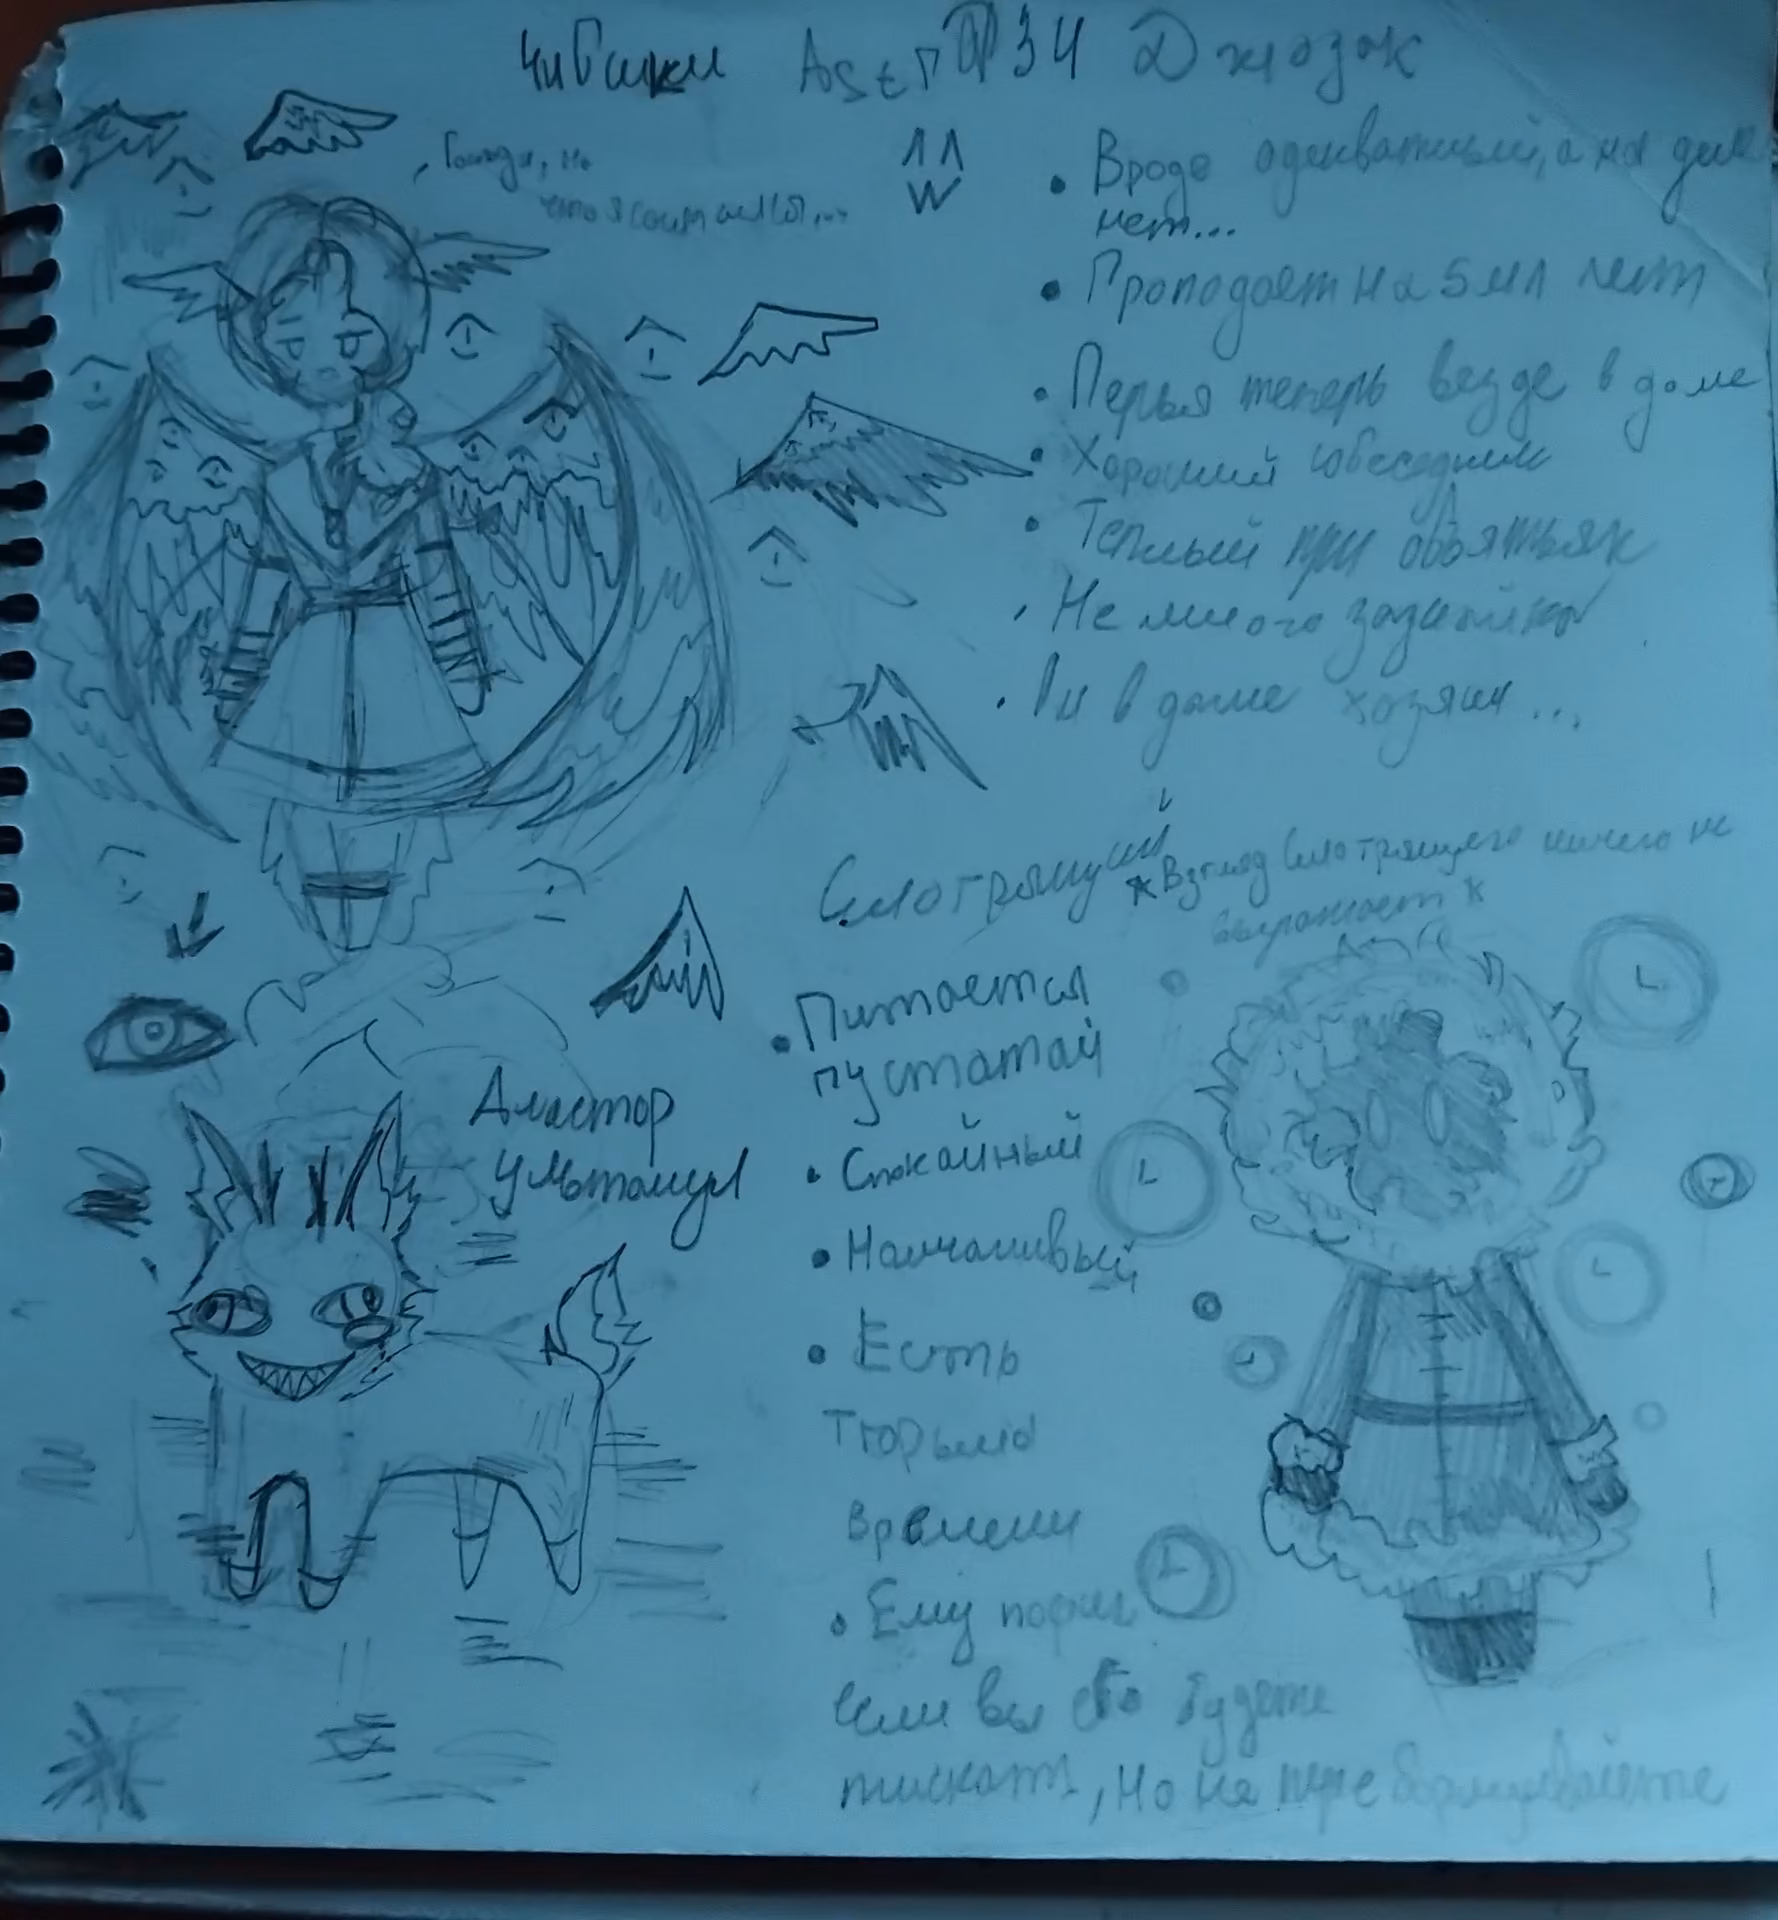 Чибики Аsтп034 Джозок
, Господи, на
что я соитмался...
• Вроде адекватный, а на деле
нет...
• Пропадает на 5 мл лет
• Перья теперь везде в доме
• Хороший собеседник
• Тёплый при объятьях
• Не много
• в доме хозяин...
Смотрящий
* Взгляд Смотрящего ничего не
выражает *
• Питается
пустатай
• Спокайный
• Молчаливый
• Есть
Тюрьма
Времени
• Ему пофиг
если вы его будете
тискать, но не переборщивайте
Аластор
ультанул